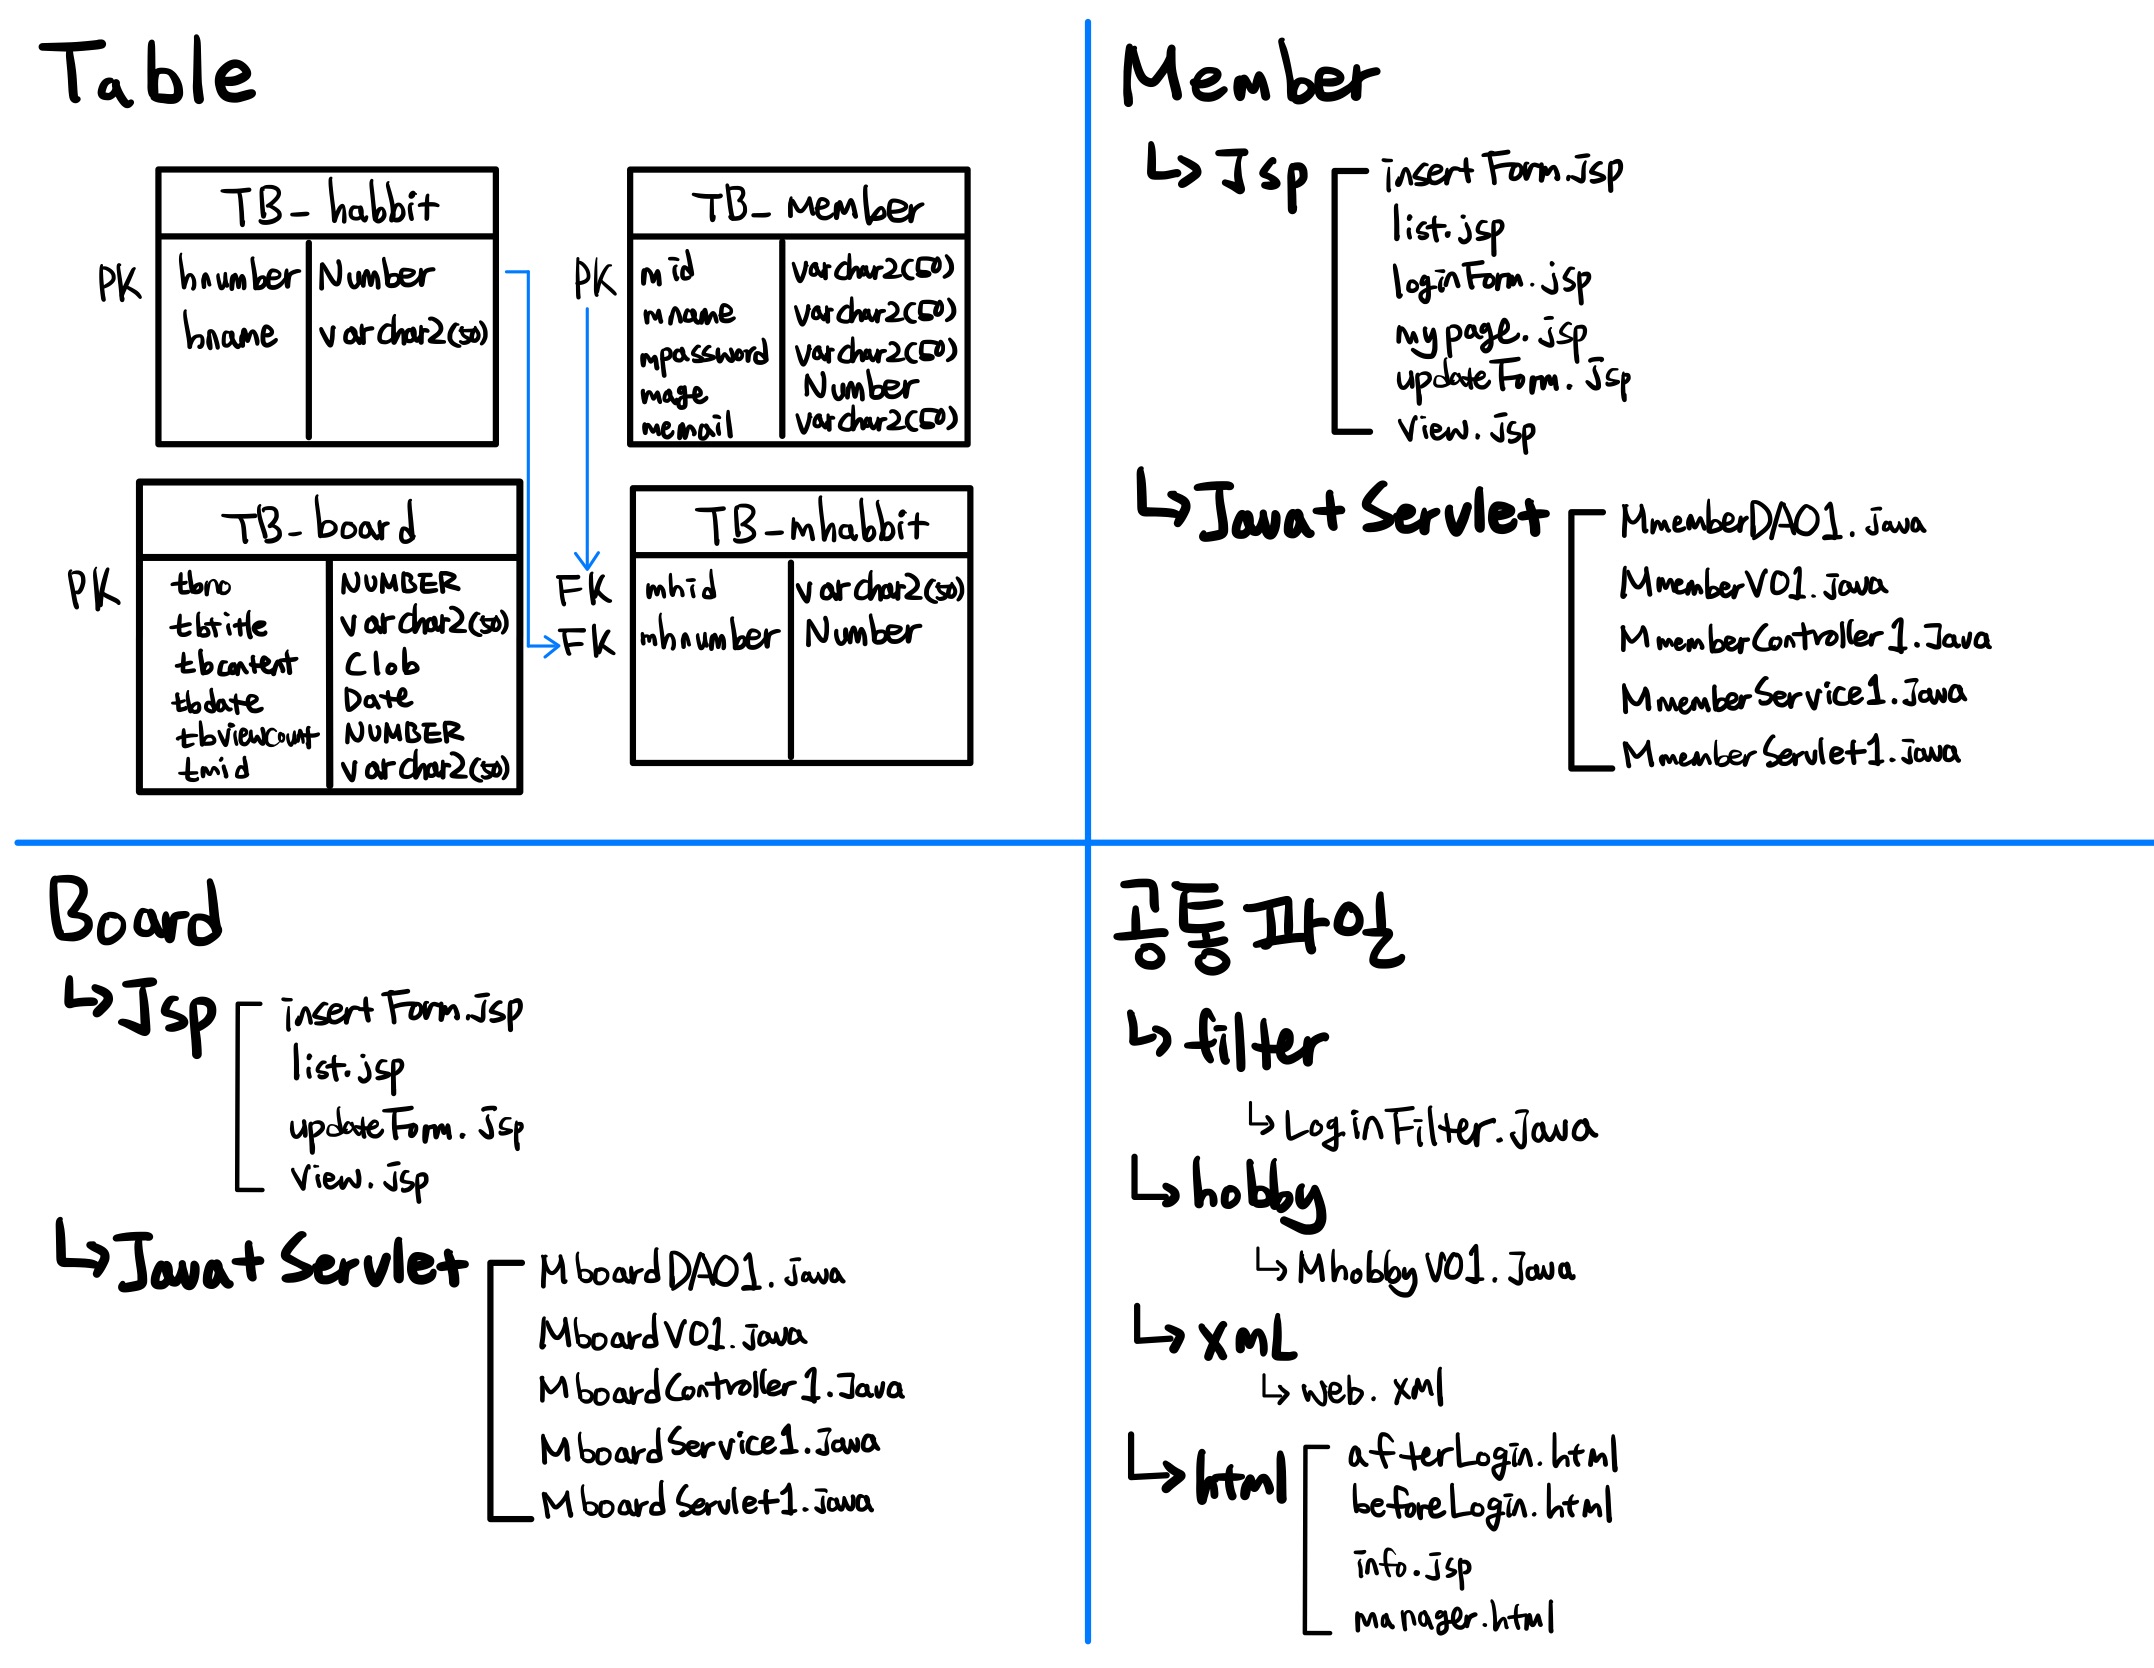 Table
TB_habbit
PK hnumber Number
hname varchar2(50)
TB_member
PK mid varchar2(50)
mname varchar2(50)
mpassword varchar2(50)
mage Number
memail varchar2(50)
TB_board
PK tbno NUMBER
tbtitle varchar2(50)
tbcontent Clob
tbdate Date
tbviewcount NUMBER
tmid varchar2(50)
TB_mhabbit
FK mhid varchar2(50)
FK mhnumber Number
Member
Jsp
insertForm.jsp
list.jsp
loginForm.jsp
mypage.jsp
updateForm.jsp
view.jsp
Java+Servlet
MmemberDAO1.java
MmemberVO1.java
MmemberController1.Java
MmemberService1.Java
MmemberServlet1.java
Board
Jsp
insertForm.jsp
list.jsp
updateForm.jsp
view.jsp
Java+Servlet
MboardDAO1.java
MboardVO1.java
MboardController1.Java
MboardService1.Java
MboardServlet1.java
공통파일
filter
LoginFilter.java
hobby
MhobbyVO1.java
xmL
web.xml
html
afterLogin.html
beforeLogin.html
info.jsp
manager.html